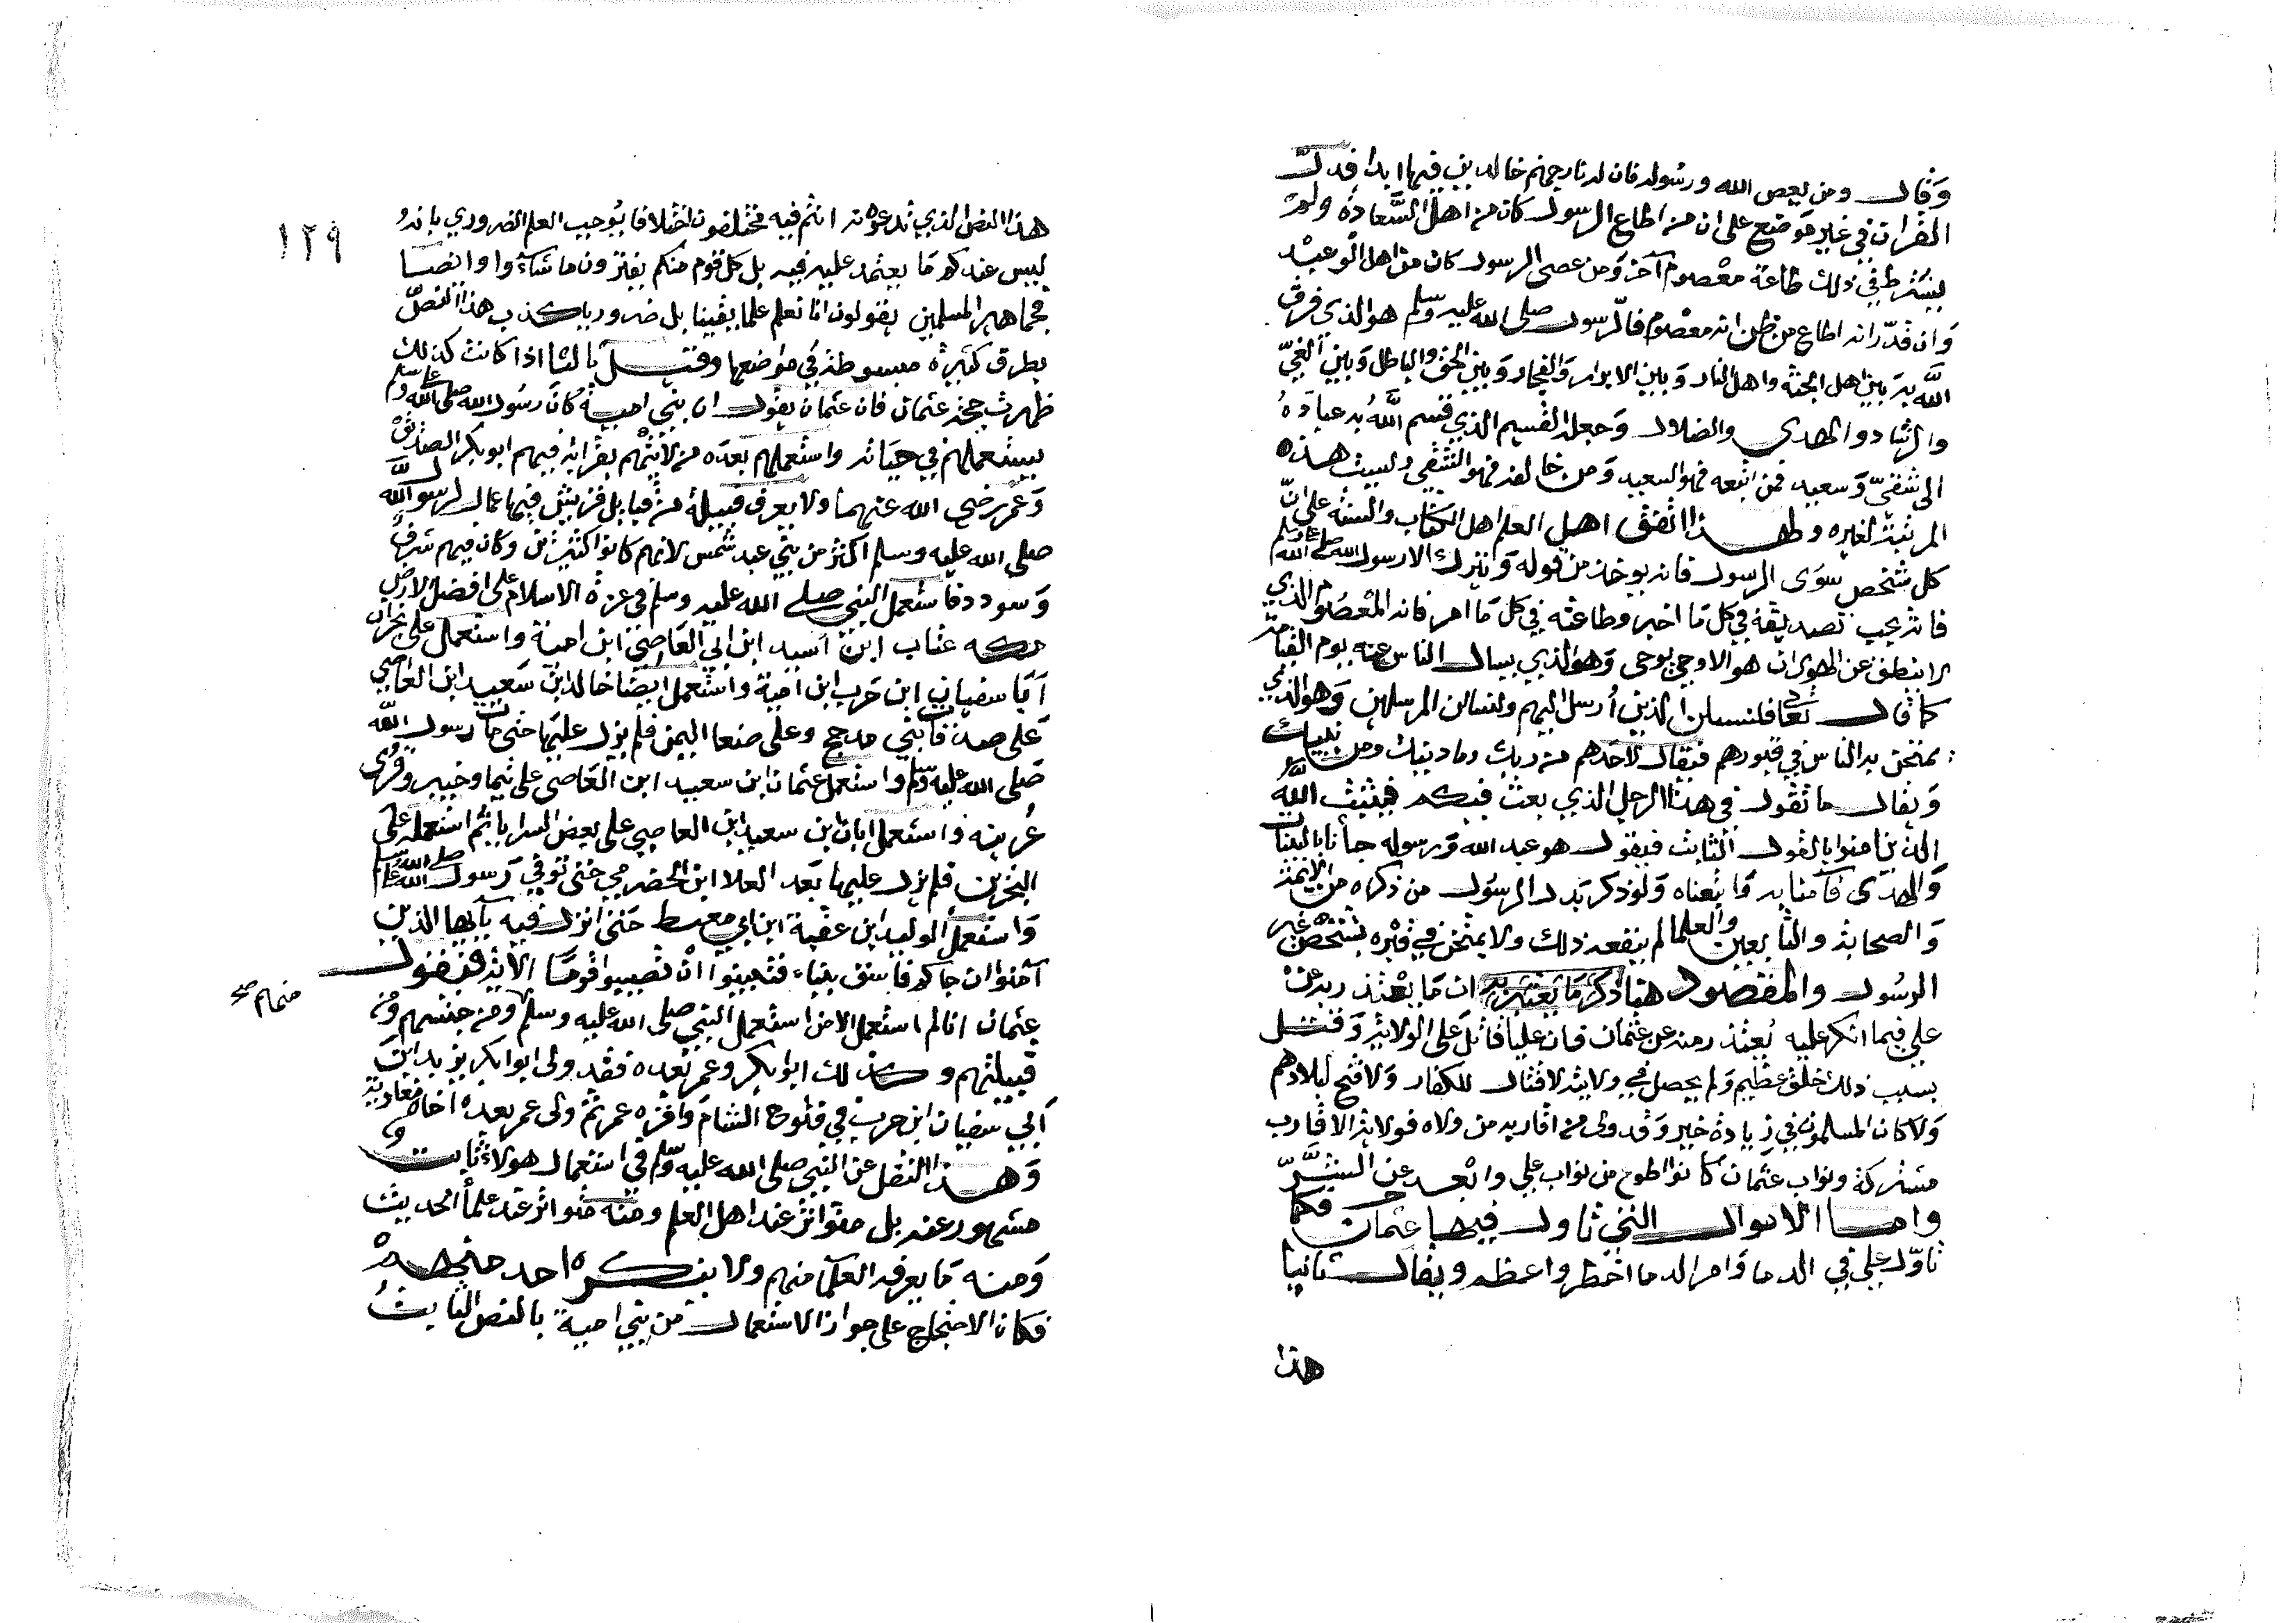 وَقال ومن يعص الله ورسوله فان له نار جهنم خالدين فيها ابدا فدلّ
القران في غير موضع على ان من اطاع الرسول كان من اهل السَّعادة ولم
يشترط في ذلك طاعة معْصوم آخر ومن عصى الرسول كان من اهل الوعيد
وَان قدّر انه اطاع من ظن انه معْصوم فالرسول صلى الله عليه وسلم هو الذي فرق
الله به بين اهل الجنة واهل النار وَبين الابرار والفجار وَبين الحق والباطل وَبين الغيّ
والرشاد والهدى والضلال وَجعله القسيم الذي قسم اللَّه به عبادَه
الى شقيّ وَسعيد فمن اتبعه فهو السعيد وَمن خالفه فهو الشقي وليست هذه
المرتبة لغيره ولهذا اتفق اهل العلم اهل الكتاب والسنة على انّ
كل شخص سوَى الرسول فانه يوخذ من قوله وَيترك الا رسول الله صلى الله عليه وسلم
فانه يجب تصديقه في كل مَا اخبر وطاعته في كل مَا امر فانه المعْصُوم الذي
لا ينطق عن الهوى ان هو الا وحي يوحى وَهو الذي يسال الناس عنه يوم القيامة
كما قال تعا فلنسلن الذين أرسل اليهم ولنسالن المرسلين وَهو الذي
يمتحن به الناس في قبورهم فيقال لاحَدهم من ربك وما دينك ومن نبيك
وَيقال ما تقول في هذا الرجل الذي بعث فيكم فيثبت اللَّه
الذين امنوا بالقول الثابت فيقول هو عبد الله وَرسوله جأنا بالبينات
وَالهدى فآمنا به وَاتبعناه وَلو ذكر بَدل الرسُول من ذكره من الايمة
وَالصحابة والتابعين والعلما لم ينفعه ذلك ولا يمتحن في قبْره بشخص غير
الرسُول والمقصود هنا ان مَا يعْتذر به عن
علي فيما انكر عليه يُعتذر منه عن عثمان فان عليا قاتل على الولاية وَقتل
بسبب ذلك خلق عظيم وَلم يحصل في ولايته لا قتال للكفار وَلا فتح لبلادهم
وَلا كان المسلمون في زيادة خير وَقد ولى من اقاربه من ولاه فولاية الاقارب
مشتركة ونواب عثمان كانوا اطوع من نواب علي وابْعد عن الشَّرّ
واما الاموال التي تاول فيها عثمان فكما
تاوّل علي في الدما وَامر الدما اخطر واعظم ويقال ثانيا
هذا
١٢٩
هذا النص الذي تدعونه انتم فيه مختلفون اختلافا يُوجب العلم الضروري بانهُ
ليس عندكم مَا يعتمد عليه فيه بل كل قوم منكم يفترون ما شآؤا وايضا
فجماهير المسلمين يقولون انا نعلم علما يقينا بل ضروريا كذب هذا النصّ
بطرق كثيرة مبسوطة في مَواضعها وقيل ثالثا اذا كانت كذلك
ظهرت حجة عثمان فان عثمان يقول ان بني امية كان رسُول الله صلى الله عليه وسلم
يستعملهم في حيَاته واستعملهم بعدَه من لا يتّهم بقرابة فيهم ابو بكر الصديق
وَعمر رضي الله عنهما ولا يعرف قبيلة من قبايل قريش فيها عمال لرسول اللَّه
صلى الله عليه وسلم اكثر من بني عبد شمس لانهم كانوا كثيرين وكان فيهم شرفٌ
وَسودد فاستعمل النبي صلى الله عليه وسلم في عزة الاسلام على افضل الارض
مكه عتاب ابن اسيد ابن ابي العَاصي ابن امية واستعمل على نجران
اَبَا سفيان ابن حَرب ابن امية واستعمل ايضا خالد ابن سَعيد ابن العَاصي
على صدقات بني مدحج وعلى صنعا اليمن فلم يزل عليهَا حتى مات رسول اللَّه
صَلى الله عليه وسلم واستعمل عثمان ابن سعيد ابن العَاصي على تيما وخيبر وقرى
عُرينه واستعمل ابان ابن سعيد ابن العاصي على بعض السرايا ثم استعمله على
البحرين فلم يزل عليها بَعد العلا ابن الحضرمي حتى توفي رَسول الله صلى الله عليه وسلم
وَاستعمل الوليد ابن عقبة ابن ابي معيط حَتى انزل فيه يآايها الذين
آمنوا ان جاكم فاسق بنباء فتبينوا انْ تصيبوا قومًا الاية فيَقول
عثمان انا لم استعمل الا من استعمل النبي صلى الله عليه وسلم ومن جنسهم ومن
قبيلتهم وكذلك ابُو بكر وعمر بَعده فقد ولى ابو ابكر يزيد ابن
اَبي سفيان ابن حرب في فتوح الشام وَاقره عمر ثم ولى عمر بعده اخاه مُعاوية
وَهذا النقل عن النبي صلى الله عليه وسلم في استعمال هولاء ثابت
مشهور عنه بل متواتر عند اهل العلم ومنه متواتر عند علمأ الحديث
وَمنه مَا يعرفه العلمآ منهم ولا ينكره احد منهم
فكان الاحتجاج على جواز الاستعمال من بني امية بالنص الثابت